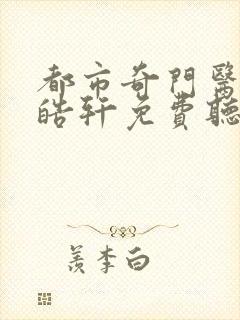 都市奇門醫
皓軒免費聽
羨李白